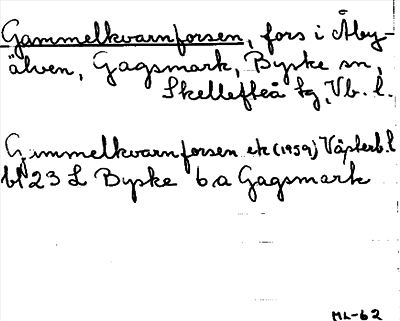 Gammelkvarnforsen, fors i Åby-
älven, Gagsmark, Byske sn,
Skellefteå tg, Vb. l.
Gammelkvarnforsen ek (1959) Västerb. l
bl 23 L Byske 6 a Gagsmark
ML-62